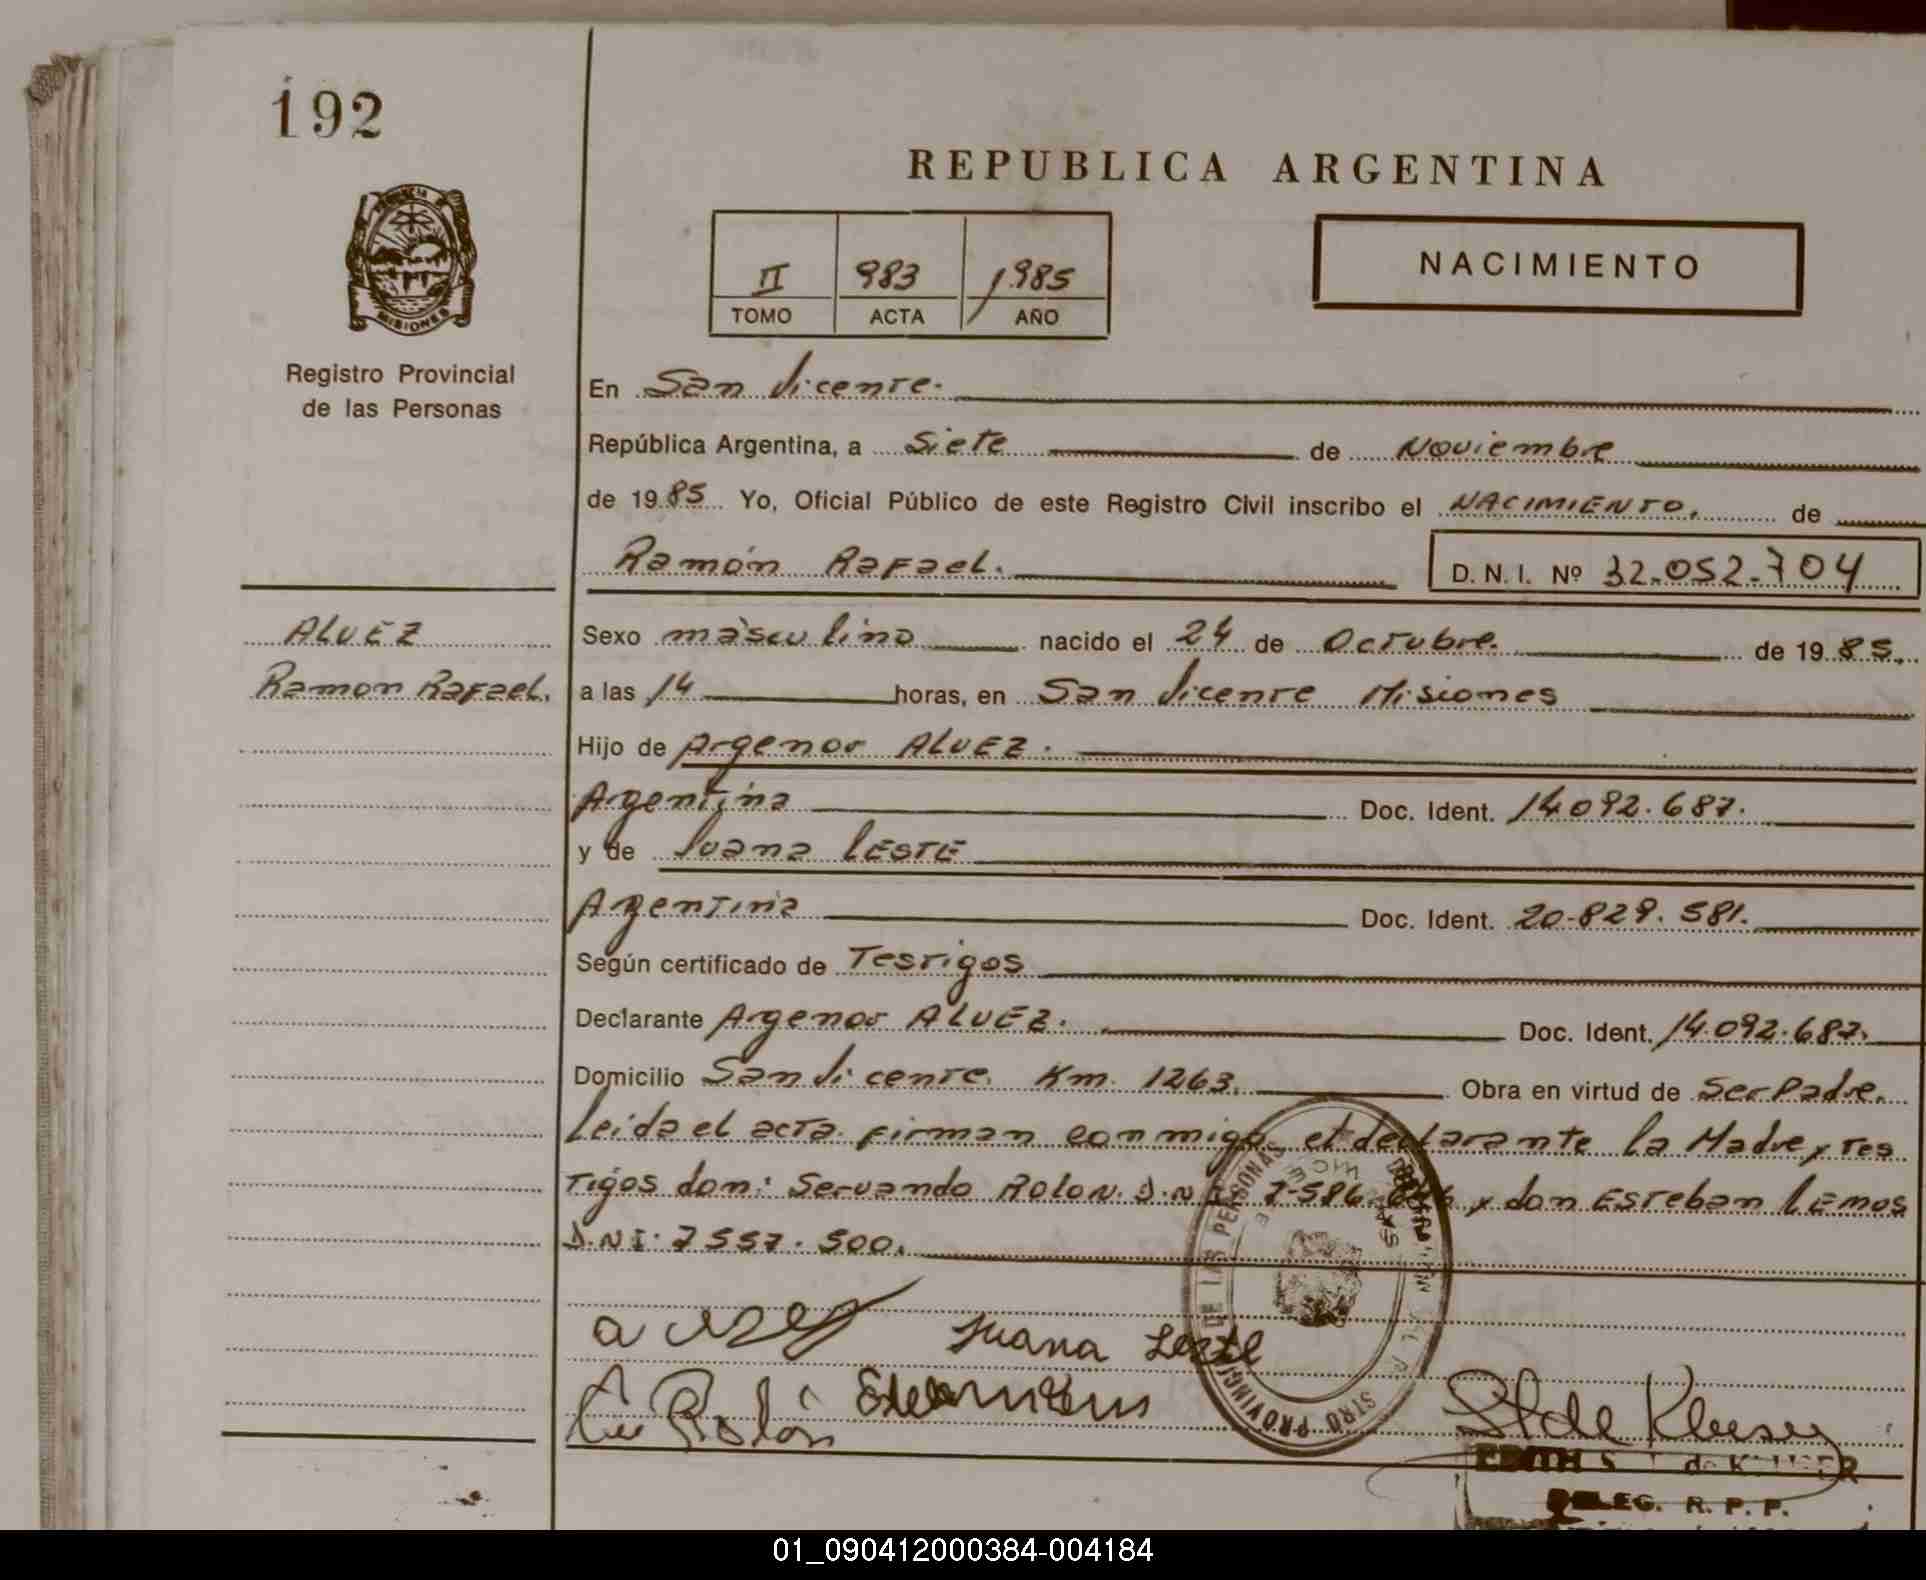 192
REPUBLICA ARGENTINA
NACIMIENTO
II 983 1985
TOMO ACTA AÑO
MISIONES
Registro Provincial
de las Personas
En San Vicente.
República Argentina, a Siete de Noviembre
de 1985 Yo, Oficial Público de este Registro Civil inscribo el NACIMIENTO. de
Ramón Rafael. D. N. I. Nº 32.052.704
ALVEZ
Ramon Rafael.
Sexo másculino nacido el 24 de Octubre. de 1985.
a las 14 horas, en San Vicente Misiones
Hijo de Argenor ALVEZ.
Argentina Doc. Ident. 14.092.687.
y de Juana LESTE
Argentina Doc. Ident. 20.829.581.
Según certificado de Testigos
Declarante Argenor ALVEZ. Doc. Ident. 14.092.687.
Domicilio San Vicente. Km. 1263. Obra en virtud de Ser Padre.
Leida el acta firman conmigo el declarante la Madre y Tes
Tigos don: Servando ROLON. D.N.I. 7.586. y don ESTeban LEMOS
D.N.I. 7557.500.
Juana Leste
Rolón
EDITH S. de
DELEG. R. P. P.
01_090412000384-004184